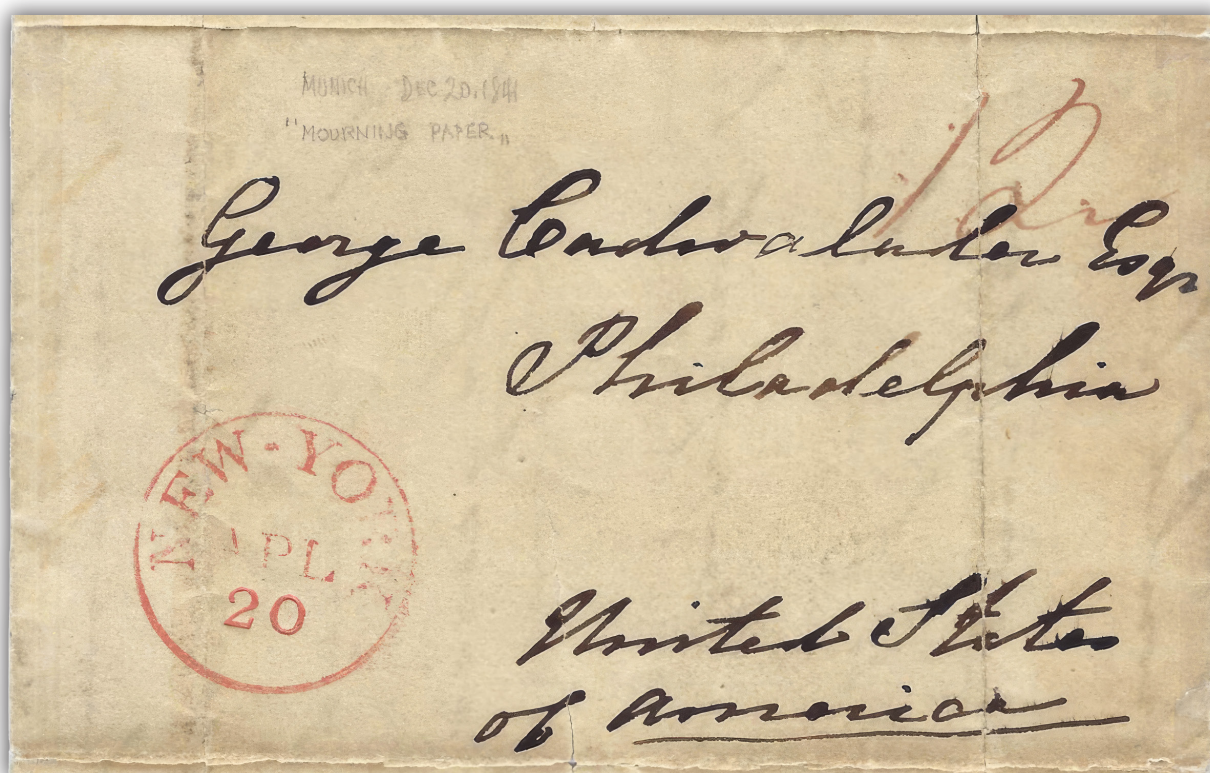 MUNICH DEC 20, 1841
"MOURNING PAPER"
12
George Cadwalader Esqr
Philadelphia
NEW-YORK
APL
20
United States
of America